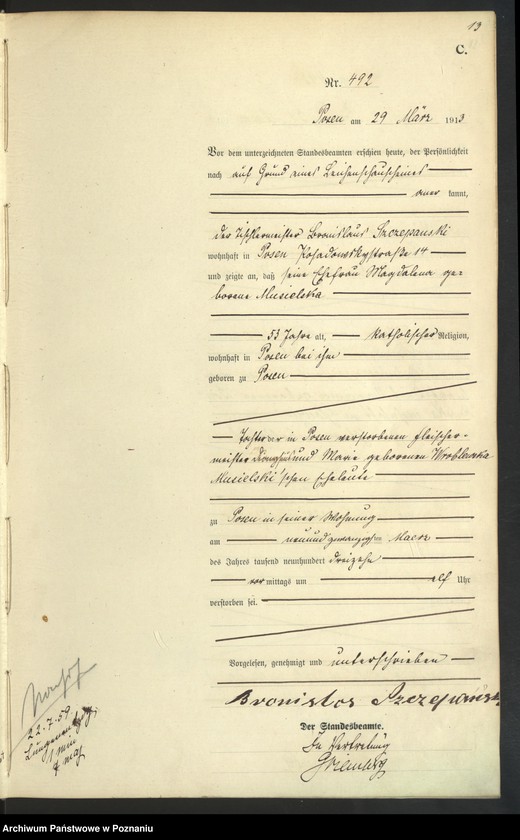 13
C.
Nr. 492
Posen am 29 März 1913
Vor dem unterzeichneten Standesbeamten erschien heute, der Persönlichkeit
nach auf Grund eines Leichenschauscheines
aner kannt,
der Tischlermeister Bronislaus Szczepanski
wohnhaft in Posen Posadowskystraße 14
und zeigte an, daß seine Ehefrau Magdalena ge-
borene Musielska
53 Jahre alt, katholischer Religion,
wohnhaft in Posen bei ihm
geboren zu Posen
Tochter der in Posen verstorbenen Fleischer-
meister und Marie geborenen Wroblewska
Musielski'schen Eheleute
zu Posen in seiner Wohnung
am neunundzwanzigsten Maerz
des Jahres tausend neunhundert dreizehn
vor mittags um elf Uhr
verstorben sei.
Vorgelesen, genehmigt und unterschrieben
Bronisłos Szczepański
Der Standesbeamte.
In Vertretung
22.7.59
Archiwum Państwowe w Poznaniu